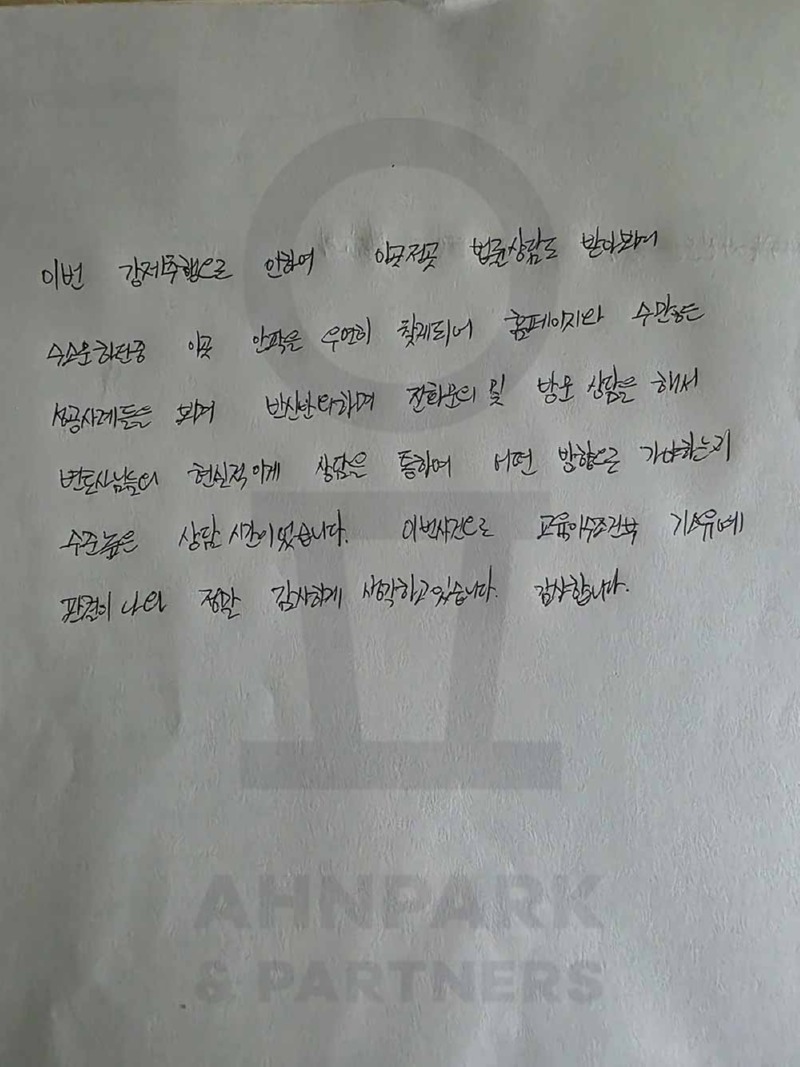 이번 강제추행으로 인하여 이곳저곳 법률상담도 받아보며
수소문하던중 이곳 안팍을 우연히 찾게되어 홈페이지와 수많은
성공사례들을 보며 반신반의하며 전화문의 및 방문 상담을 해서
변호사님들의 현실적이게 상담을 통하여 어떤 방향으로 가야하는지
수준높은 상담 시간이었습니다. 이번사건으로 교육이수조건부 기소유예
판결이 나와 정말 감사하게 생각하고있습니다. 감사합니다.
AHNPARK
& PARTNERS